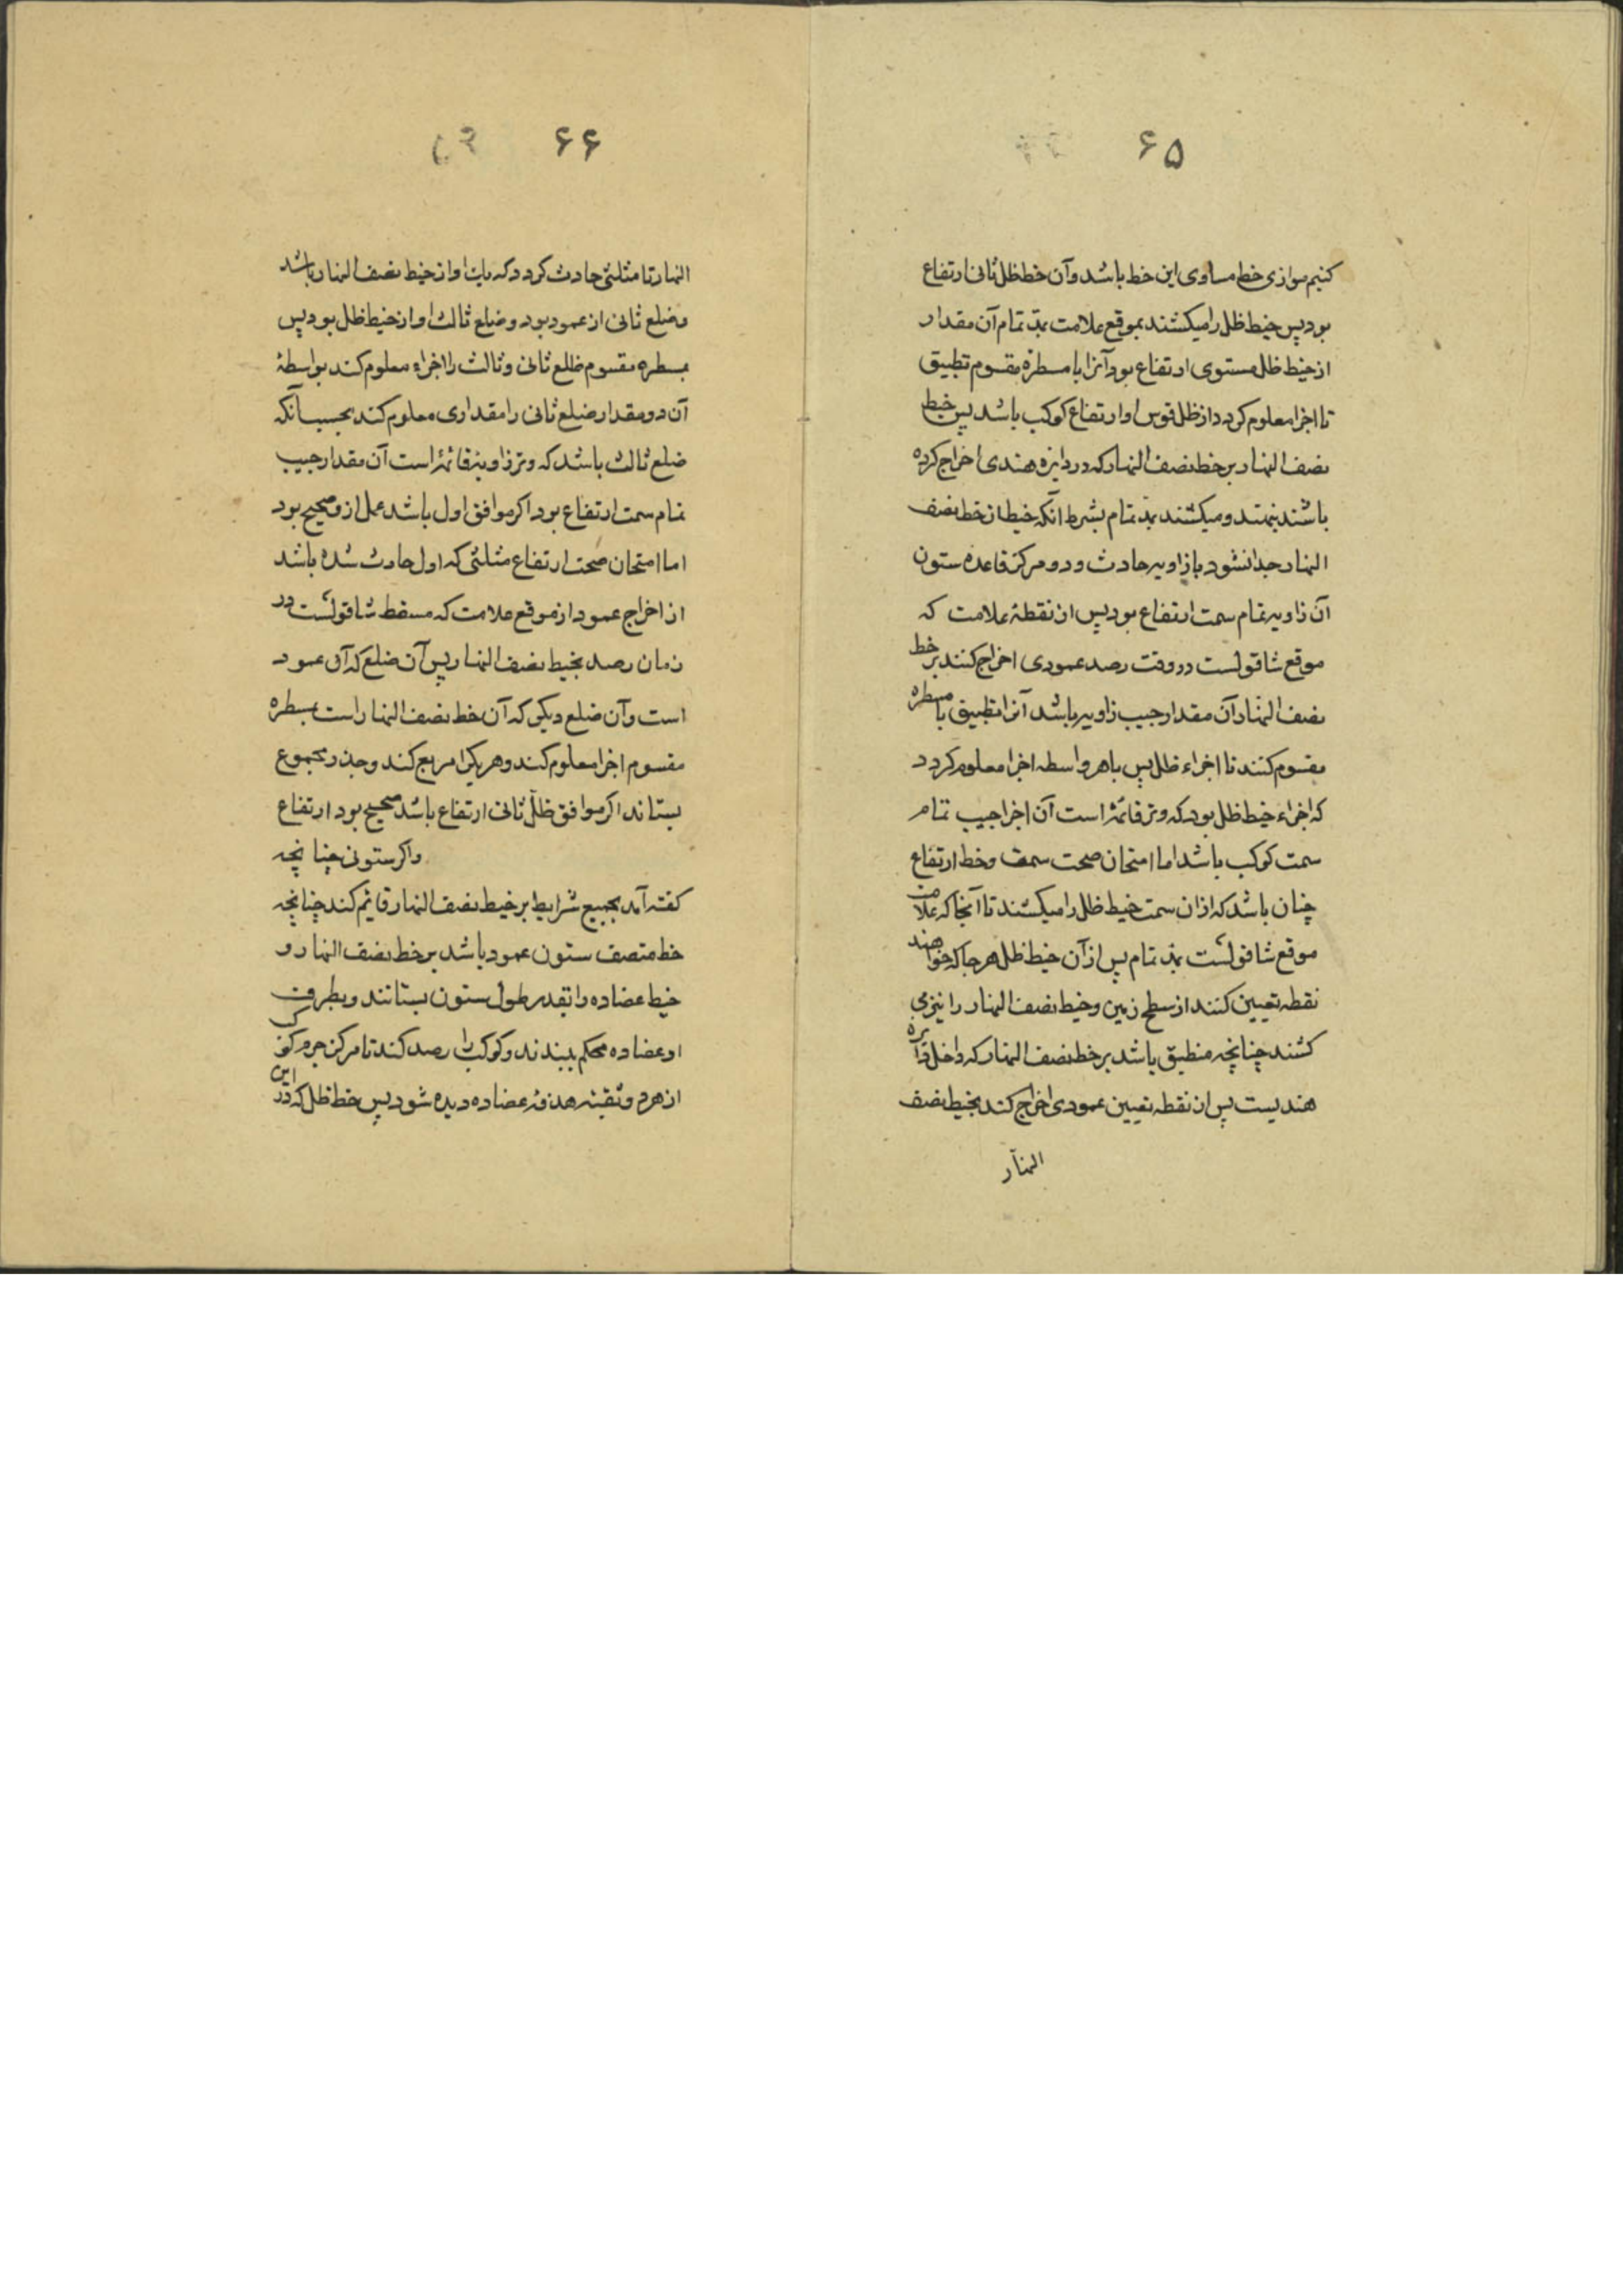 ۶۵
کنیم موازی خط مساوی این خط باشد و آن خط ظل ثانی ارتفاع
بود پس خیط ظل را میکشند بموقع علامت بمدّ تمام آن مقدار
از خیط ظل مستوی ارتفاع بود آنرا با مسطرهٔ مقسوم تطبیق
تا اجزا معلوم کردد از ظل قوس او ارتفاع کوکب باشد پس خیط
نصف النهار بر خط نصف النهار که در دایره هندی اخراج کرده
باشند ینهند و میکشند بمد تمام بشرط آنکه خیط از خط نصف
النهار جدا نشود با زاویه حادث و دو مرکز قاعده ستون
آن زاویه تمام سمت ارتفاع بود پس از نقطهٔ علامت که
موقع شاقولست در وقت رصد عمودی اخراج کنند بر خط
نصف النهار آن مقدار جیب زاویه باشد آنرا تطبیق با مسطره
مقسوم کنند تا اجزاء ظل پس باهر واسطه اجزا معلوم کردد
که اجزاء خیط ظل بود که وتر قائمه است آن اجزا جیب تمام
سمت کوکب باشد اما امتحان صحت سمت و خط ارتفاع
چنان باشد که ازان سمت خیط ظل را میکشند تا آنجا که علامت
موقع شاقولست بمد تمام پس از آن خیط ظل هر جا که خواهند
نقطه تعیین کنند از سطح زمین و خیط نصف النهار را نیز می
کشند چنانچه منطبق باشد بر خط نصف النهار که داخل دایره
هندیست پس از نقطه تعیین عمودی اخراج کند بخیط نصف
النهار
۶۶
النهار تا مثلثی حادث کردد که یک او از خیط نصف النهار باشد
وضلع ثانی از عمود بود و ضلع ثالث او از خیط ظل بود پس
بمسطره مقسوم ظلع ثانی و ثالث را اجزاء معلوم کند بواسطهٔ
آن دو مقدار ضلع ثانی را مقداری معلوم کند بحسب آنکه
ضلع ثالث باشد که وتر زاویه قائمه است آن مقدار جیب
تمام سمت ارتفاع بود اکر موافق اول باشد عمل از و صحیح بود
اما امتحان صحت ارتفاع مثلثی که اول حادث شده باشد
از اخراج عمود از موقع علامت که مسقط شاقولست در
زمان رصد بخیط نصف النهار پس آن ضلع که آن عمود
است و آن ضلع دیکر که آن خط نصف النهار است بمسطره
مقسوم اجزا معلوم کند و هر یکرا مربع کند و جذر مجموع
بستاند اکر موافق ظلّ ثانی ارتفاع باشد صحیح بود ارتفاع
واکر ستونی چنانچه
کفته آمد بجمیع شرایط بر خیط نصف النهار قایم کند چنانچه
خط منتصف ستون عمود باشد بر خط نصف النهار و
خیط عضاده را بقدر طول ستون بستانند و بطرف
او عضاده محکم ببندند و کوکب را رصد کند تا مرکز جرم کوکب
از هر دو ثقبه هدفه عضاده دیده شود پس خط ظل که در این